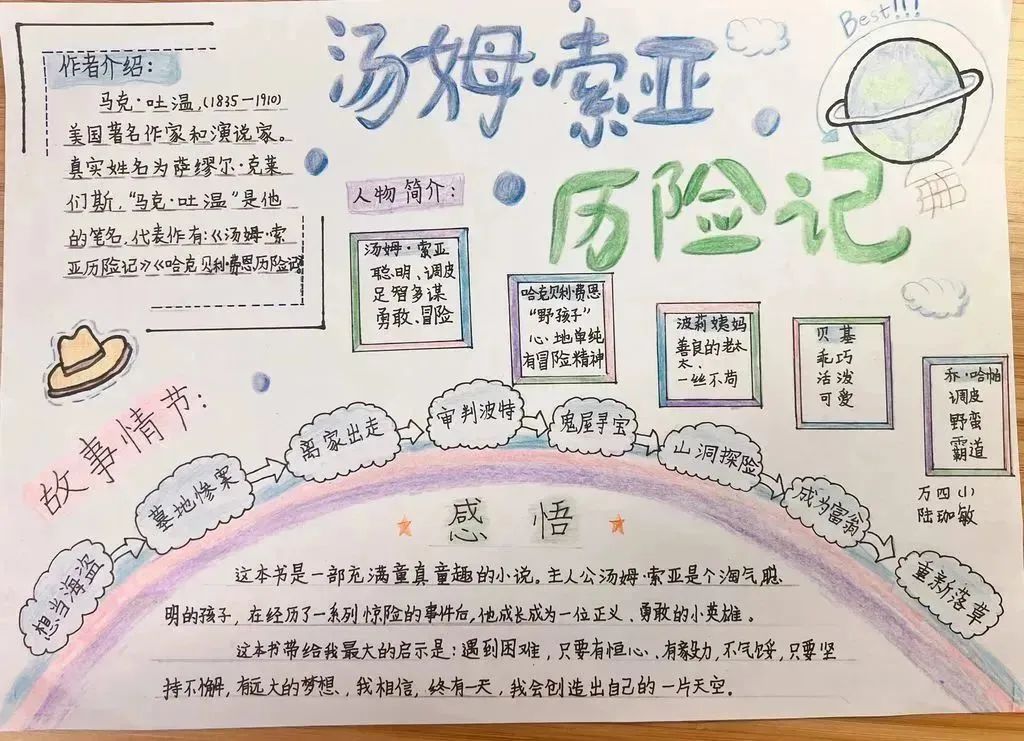 汤姆·索亚
历险记
Best!!!
作者介绍：
马克·吐温,(1835—1910)
美国著名作家和演说家。
真实姓名为萨缪尔·克莱
们斯,“马克·吐温”是他
的笔名,代表作有:《汤姆·索
亚历险记》《哈克贝利·费恩历险记》
人物简介：
汤姆·索亚
聪明、调皮
足智多谋
勇敢、冒险
哈克贝利·费恩
“野孩子”
心地单纯
有冒险精神
波莉姨妈
善良的老太
太、
一丝不苟
贝基
乖巧
活泼
可爱
乔·哈帕
调皮
野蛮
霸道
万四(1)
陆珈敏
故事情节：
想当海盗
墓地惨案
离家出走
审判波特
鬼屋寻宝
山洞探险
成为富翁
重新落草
感悟
这本书是一部充满童真童趣的小说。主人公汤姆·索亚是个淘气聪
明的孩子,在经历了一系列惊险的事件后,他成长成为一位正义、勇敢的小英雄。
这本书带给我最大的启示是:遇到困难,只要有恒心、有毅力,不气馁,只要坚
持不懈,有远大的梦想,我相信,终有一天,我会创造出自己的一片天空。